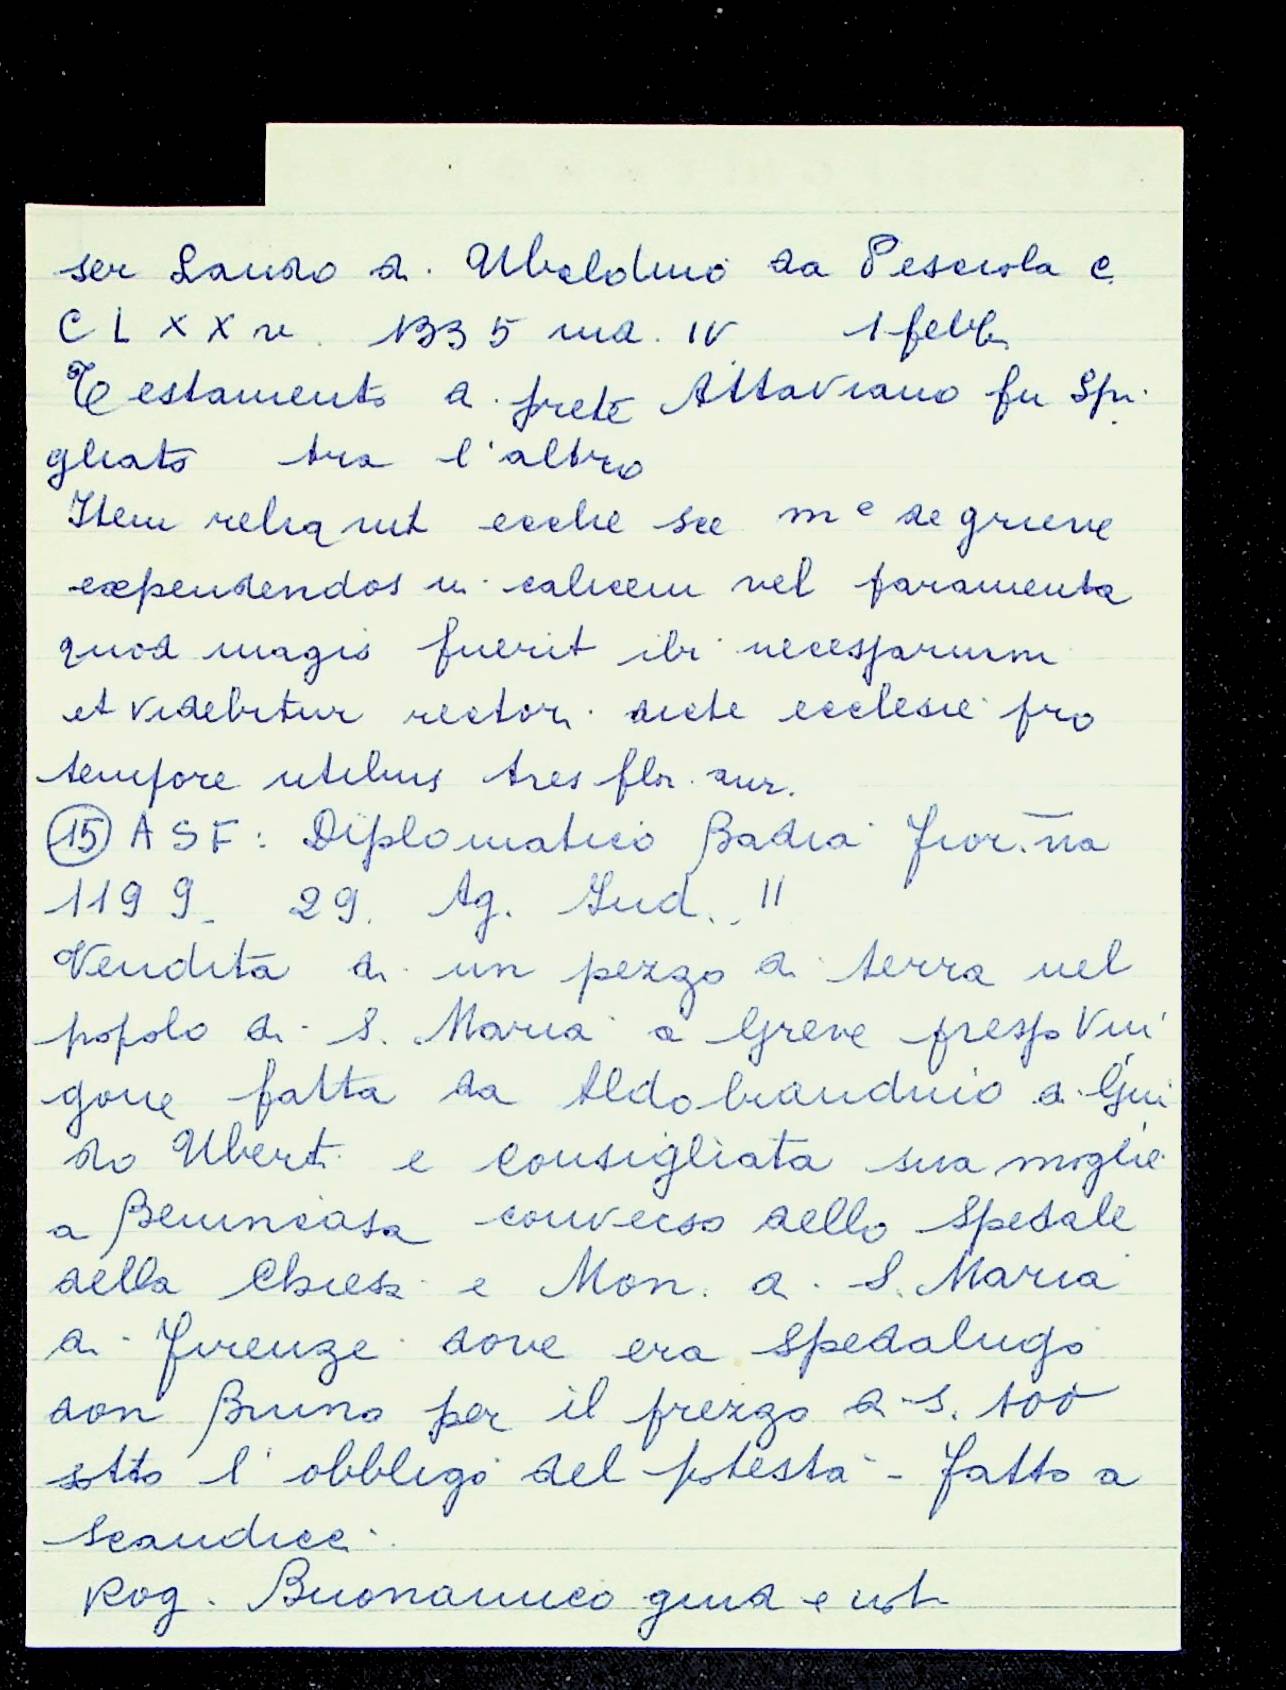 ser Lando di Ubaldino da Pesciola c.
CLXXv. 1335 ind. IV 1 febb.
Testamento di prete Attaviano fu Spi
gliato tra l'altro
Item reliquit ecclie sce me de grieve
expendendos in calicem vel paramenta
quod magis fuerit ibi necessarium
et videbitur rectori dicte ecclesie pro
tempore utilius tres flor. aur.
(15) ASF: Diplomatico Badia Fior.na
1199. 29. Ag. Ind. II
Vendita di un pezzo di terra nel
popolo di S. Maria a Greve presso Vin
gone fatta da Aldobrandino di Gui
do Uberti e Consigliata sua moglie
a Benincasa converso dello Spedale
della Chiesa e Mon. di S. Maria
di Firenze dove era spedalingo
don Bruno per il prezzo di s. 100
sotto l'obbligo del potestà - fatto a
Scandicci.
Rog. Buonamico giud e not